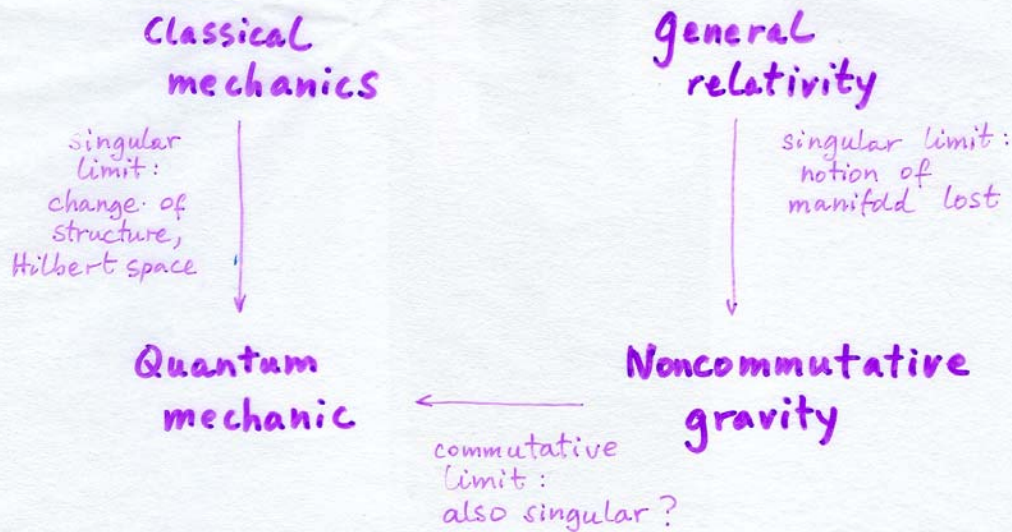 Classical
mechanics
general
relativity
singular
limit:
change of
structure,
Hilbert space
singular limit:
notion of
manifold lost
Quantum
mechanic
Noncommutative
gravity
commutative
limit:
also singular?